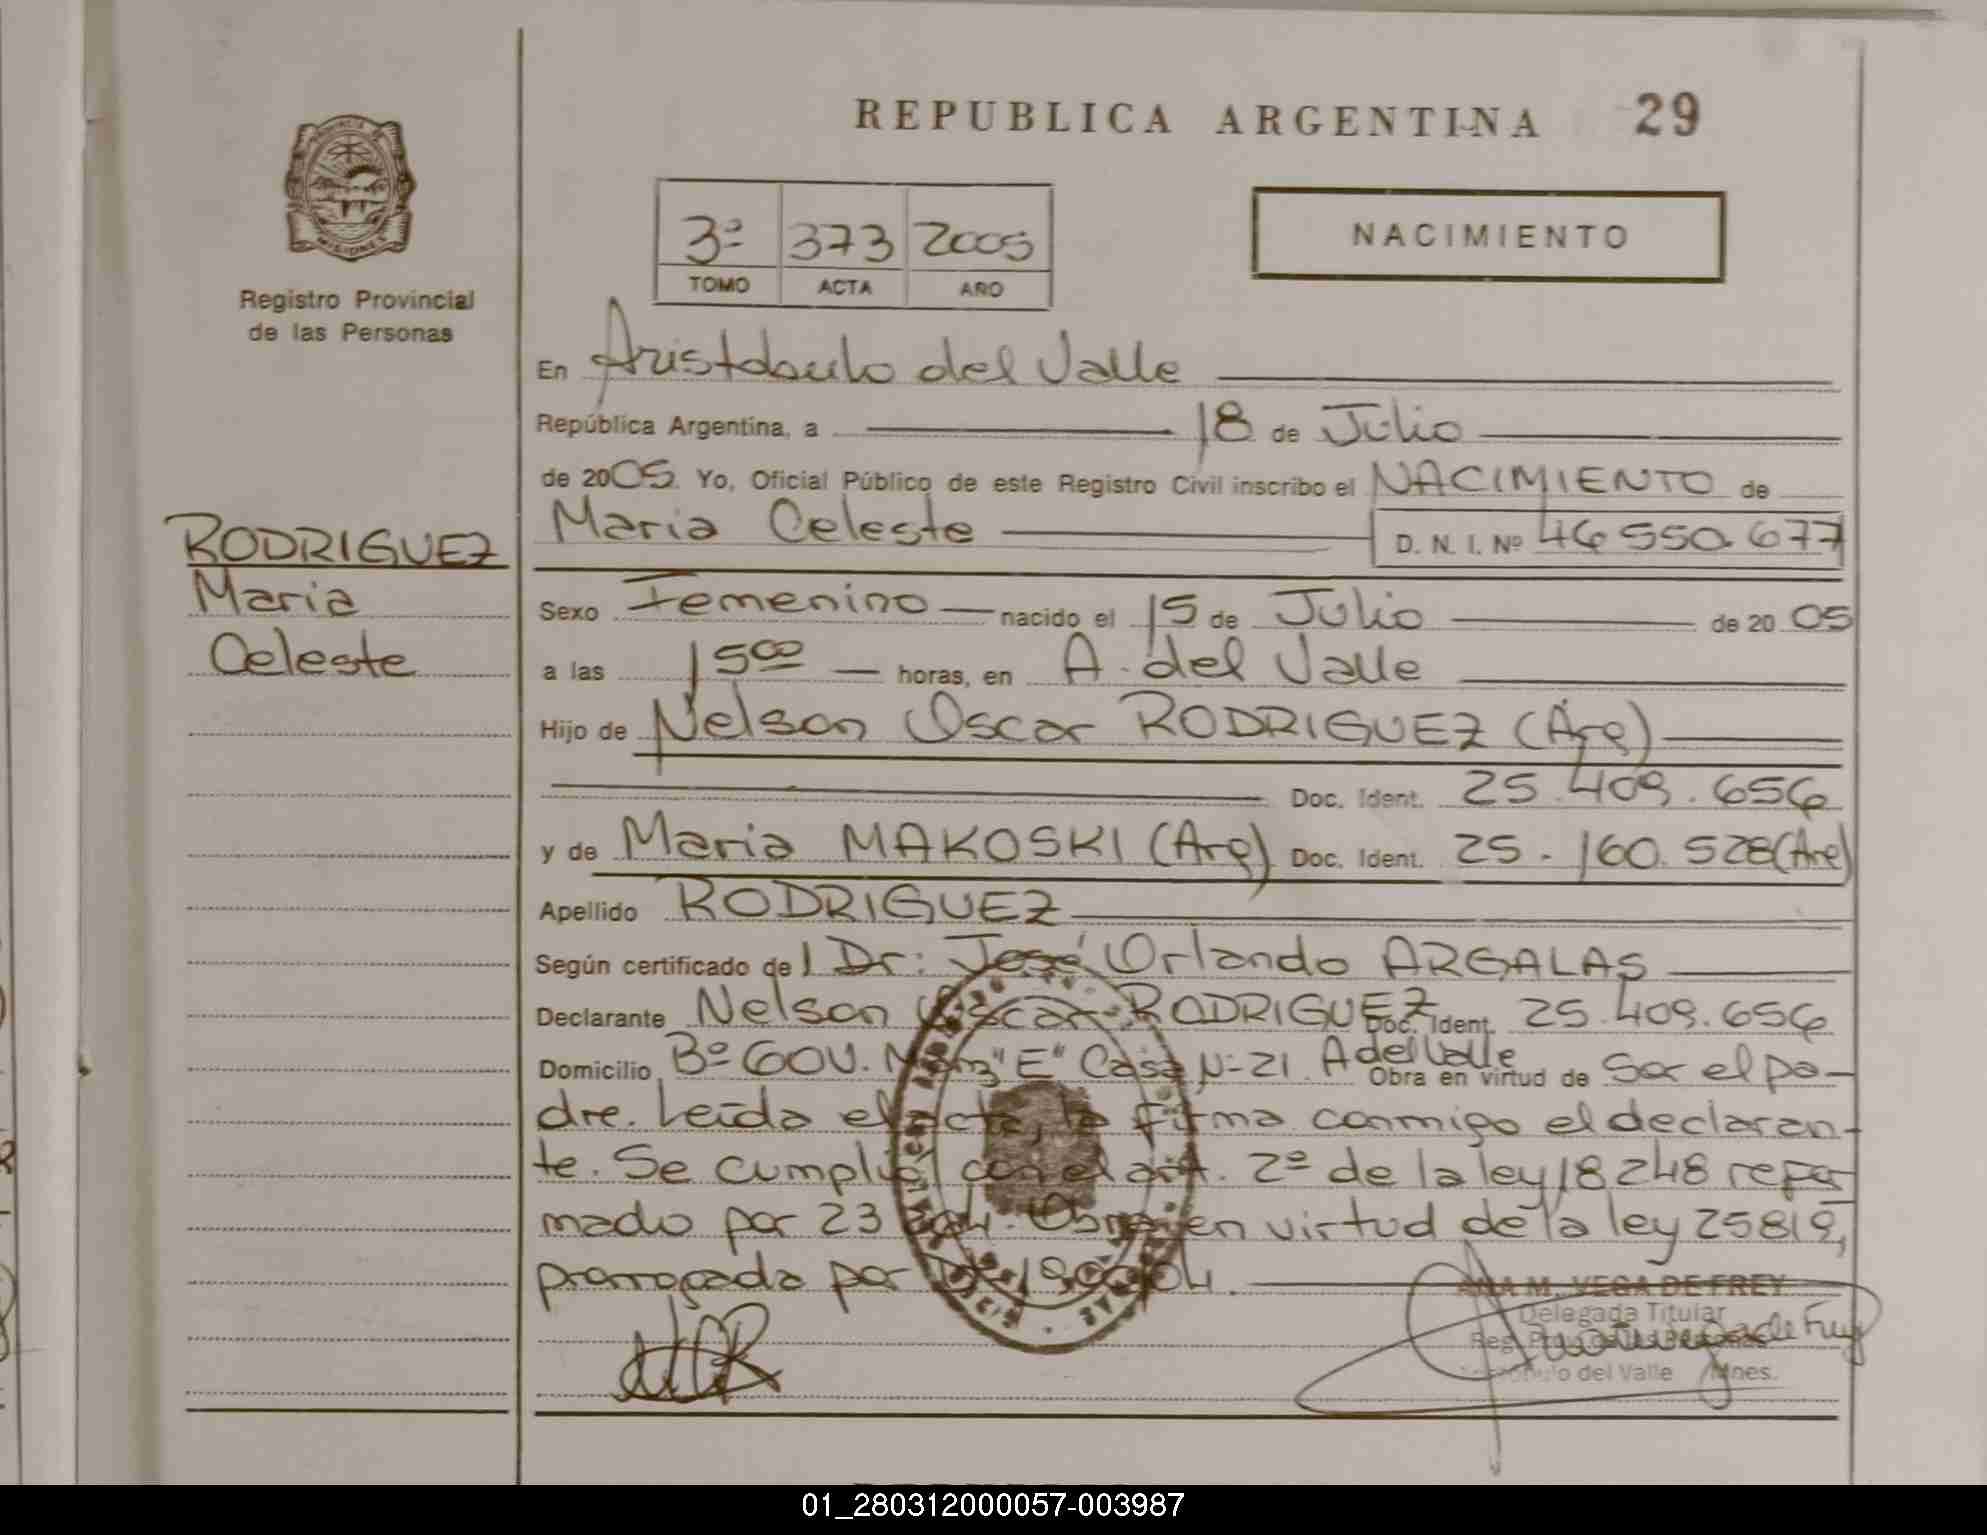 REPUBLICA ARGENTINA 29
PROVINCIA DE
MISIONES
Registro Provincial
de las Personas
3ª 373 2005
TOMO ACTA AÑO
NACIMIENTO
En Aristóbulo del Valle
República Argentina, a 18 de Julio
de 2005. Yo, Oficial Público de este Registro Civil inscribo el NACIMIENTO de
Maria Celeste D. N. I. Nº 46 550.677
RODRIGUEZ
Maria
Celeste
Sexo Femenino nacido el 15 de Julio de 20 05
a las 15 00 horas, en A. del Valle
Hijo de Nelson Oscar RODRIGUEZ (Arg)
Doc. Ident. 25.409.656
y de Maria MAKOSKI (Arg) Doc. Ident. 25.160.528 (Arg)
Apellido RODRIGUEZ
Según certificado del Dr. José Orlando ARGALAS
Declarante Nelson Oscar RODRIGUEZ Doc. Ident. 25.409.656
Domicilio Bº GOV. Manz "E" Casa Nº 21. A del Valle Obra en virtud de Ser el pa-
dre. Leída el acta, la firma conmigo el declaran-
te. Se cumplió con el art. 2º de la ley 18248 refor
mado por 23 Obra en virtud de la ley 25819,
prorrogada por
ANA M. VEGA DE FREY
Delegada Titular
del Valle Mnes.
01_280312000057-003987